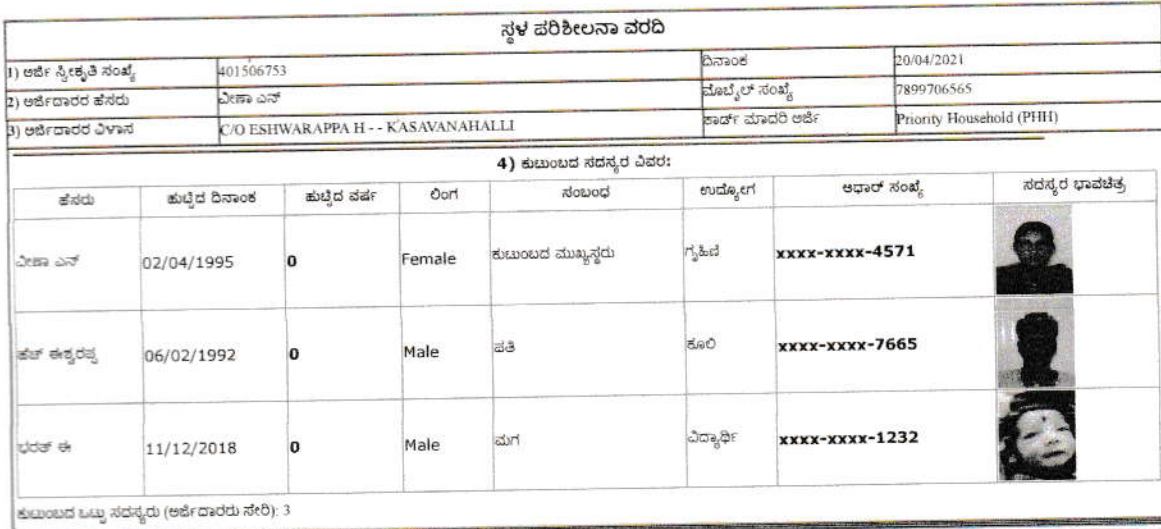 ಸ್ಥಳ ಪರಿಶೀಲನಾ ವರದಿ
1) ಅರ್ಜಿ ಸ್ವೀಕೃತಿ ಸಂಖ್ಯೆ 401506753 ದಿನಾಂಕ 20/04/2021
2) ಅರ್ಜಿದಾರರ ಹೆಸರು ವೀಣಾ ಎನ್ ಮೊಬೈಲ್ ಸಂಖ್ಯೆ 7899706565
3) ಅರ್ಜಿದಾರರ ವಿಳಾಸ C/O ESHWARAPPA H - - KASAVANAHALLI ಕಾರ್ಡ್ ಮಾದರಿ ಅರ್ಜಿ Priority Household (PHH)
4) ಕುಟುಂಬದ ಸದಸ್ಯರ ವಿವರ:
ಹೆಸರು ಹುಟ್ಟಿದ ದಿನಾಂಕ ಹುಟ್ಟಿದ ವರ್ಷ ಲಿಂಗ ಸಂಬಂಧ ಉದ್ಯೋಗ ಆಧಾರ್ ಸಂಖ್ಯೆ ಸದಸ್ಯರ ಭಾವಚಿತ್ರ
ವೀಣಾ ಎನ್ 02/04/1995 0 Female ಕುಟುಂಬದ ಮುಖ್ಯಸ್ಥರು ಗೃಹಿಣಿ xxxx-xxxx-4571
ಹೆಚ್ ಈಶ್ವರಪ್ಪ 06/02/1992 0 Male ಪತಿ ಕೂಲಿ xxxx-xxxx-7665
ಭರತ್ ಈ 11/12/2018 0 Male ಮಗ ವಿದ್ಯಾರ್ಥಿ xxxx-xxxx-1232
ಕುಟುಂಬದ ಒಟ್ಟು ಸದಸ್ಯರು (ಅರ್ಜಿದಾರರು ಸೇರಿ): 3